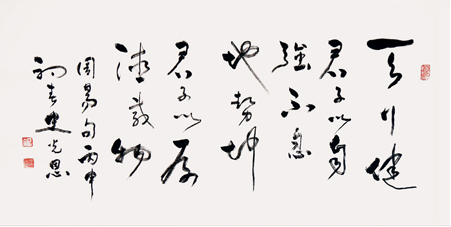 天行健
君子以自
強不息
地勢坤
君子以厚
德載物
周易句丙申
初春史恩